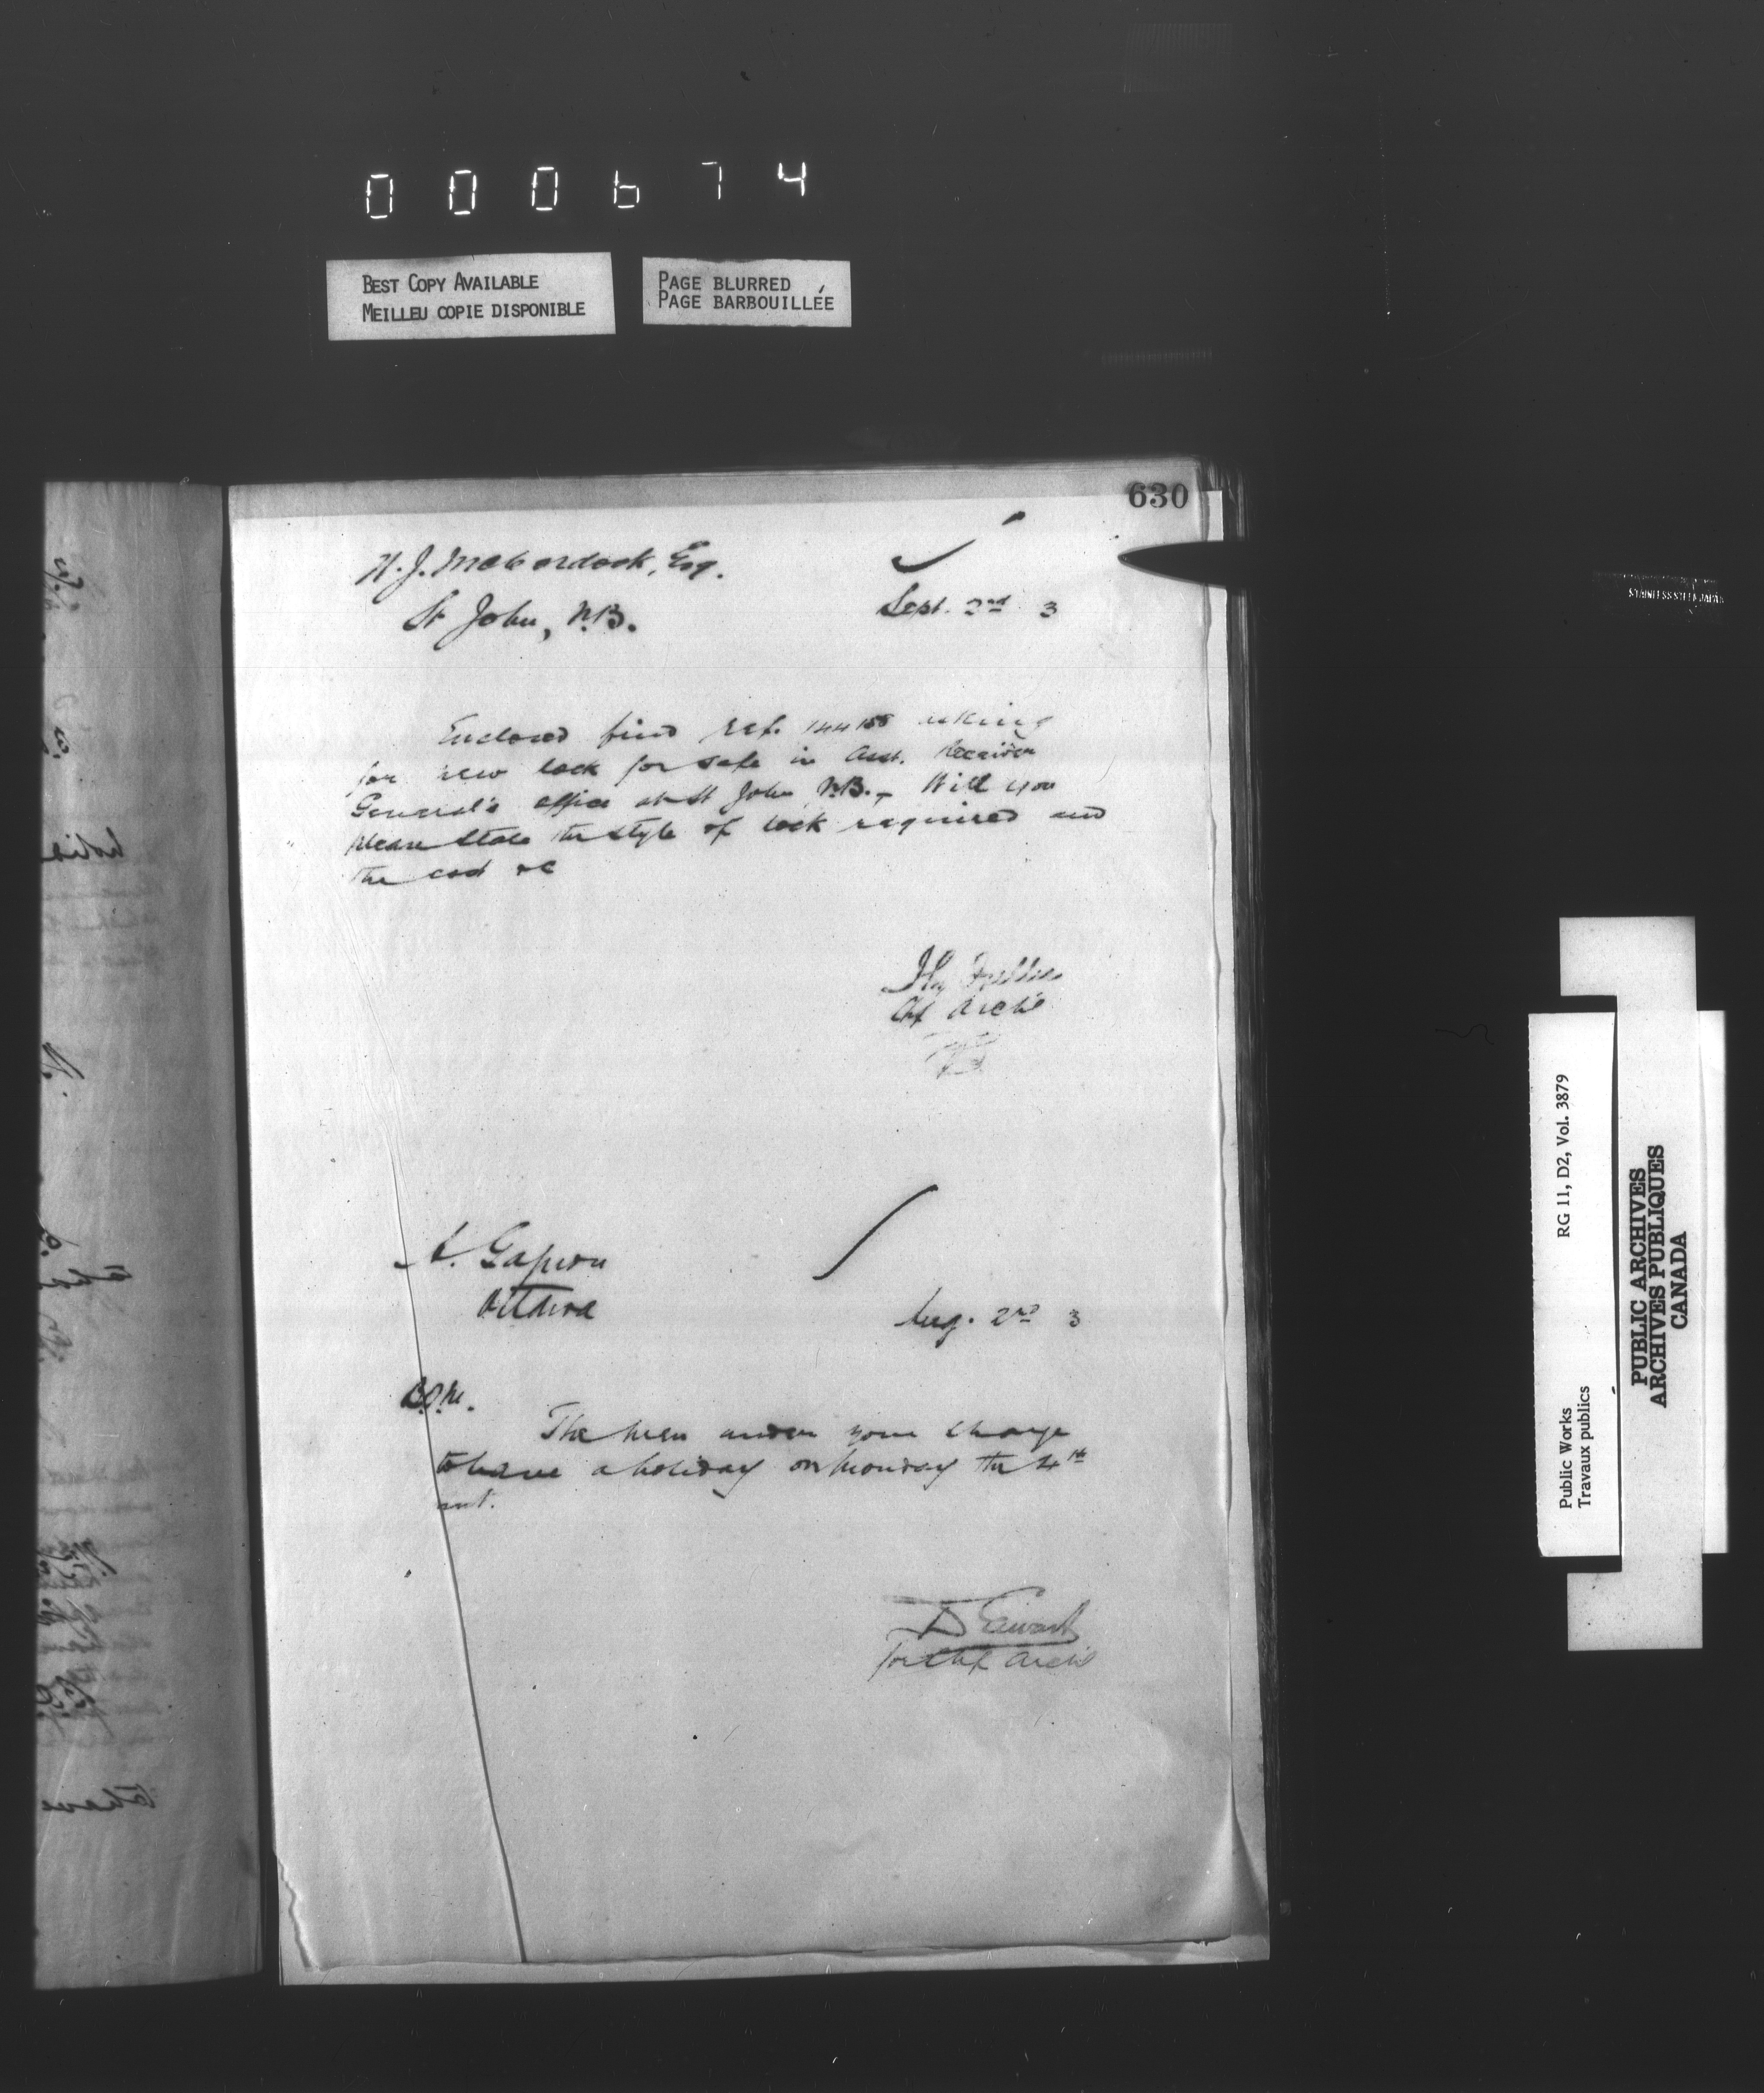 000674
BEST COPY AVAILABLE
MEILLEU COPIE DISPONIBLE
PAGE BLURRED
PAGE BARBOUILLÉE
630
St John, N.B.
Sept. 2nd 3
Enclosed find ref. 144155 asking
for new lock for safe in Asst. Receiver
General's office at St John N.B. - Will you
please state the style of lock required and
the cost &c
Chf Archt
Ottawa
Aug. 2nd 3
The men under your charge
to have a holiday on Monday the 4th
inst.
D Ewart
For Chf Archt
STAINLESS STEEL JAPAN
RG 11, D2, Vol. 3879
Public Works
Travaux publics
PUBLIC ARCHIVES
ARCHIVES PUBLIQUES
CANADA